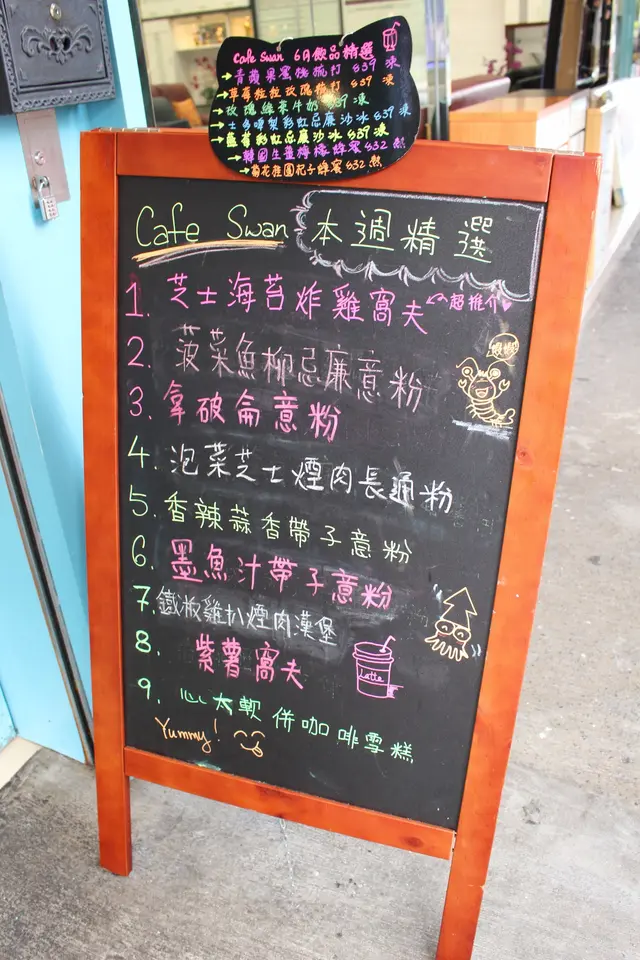 Cafe Swan 6月飲品精選
→青蘋果蜜桃梳打 $39 凍
→草莓粒粒玫瑰梳打 $39 凍
→玫瑰綠茶牛奶 $39 凍
→士多啤梨彩虹忌廉沙冰 $39 凍
→藍莓彩虹忌廉沙冰 $39 凍
→韓國生薑檸檬蜂蜜 $32 熱
→菊花桂圓杞子蜂蜜 $32 熱
Cafe Swan 本週精選
1. 芝士海苔炸雞窩夫 超推介
2. 菠菜魚柳忌廉意粉
蝦蝦
3. 拿破侖意粉
4. 泡菜芝士煙肉長通粉
5. 香辣蒜香帶子意粉
6. 墨魚汁帶子意粉
7. 鐵板雞扒煙肉漢堡
8. 紫薯窩夫
Latte
9. 心太軟併咖啡雪糕
Yummy!